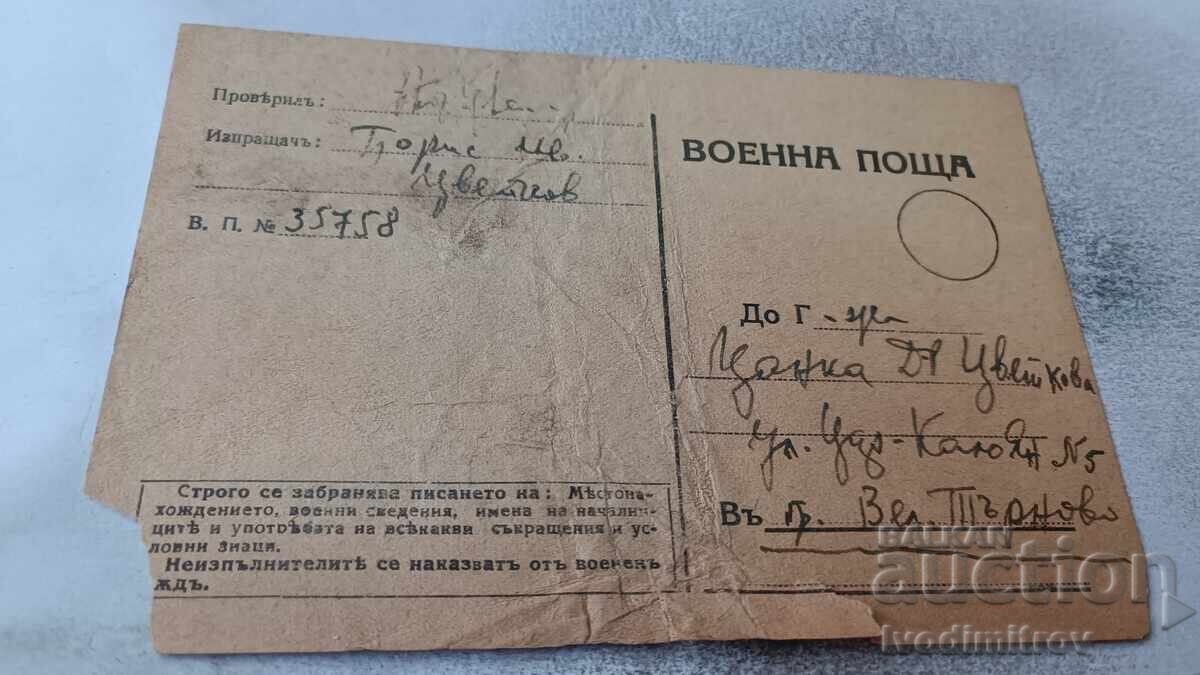 Провѣрилъ:
Изпращачъ: Борис Цв.
Цветков
В. П. № 35758
Строго се забранява писането на: Мѣстона-
хождението, военни сведения, имена на начални-
цитѣ и употрѣбата на всѣкакви съкращения и ус
ловни знаци.
Неизпълнителитѣ се наказватъ отъ воененъ
ждъ.
ВОЕННА ПОЩА
До Г-жа
Цонка Д. Цветкова
ул. Цар-Калоян №5
Въ гр. Вел. Търново
BALKAN
auction
Ivodimitrov